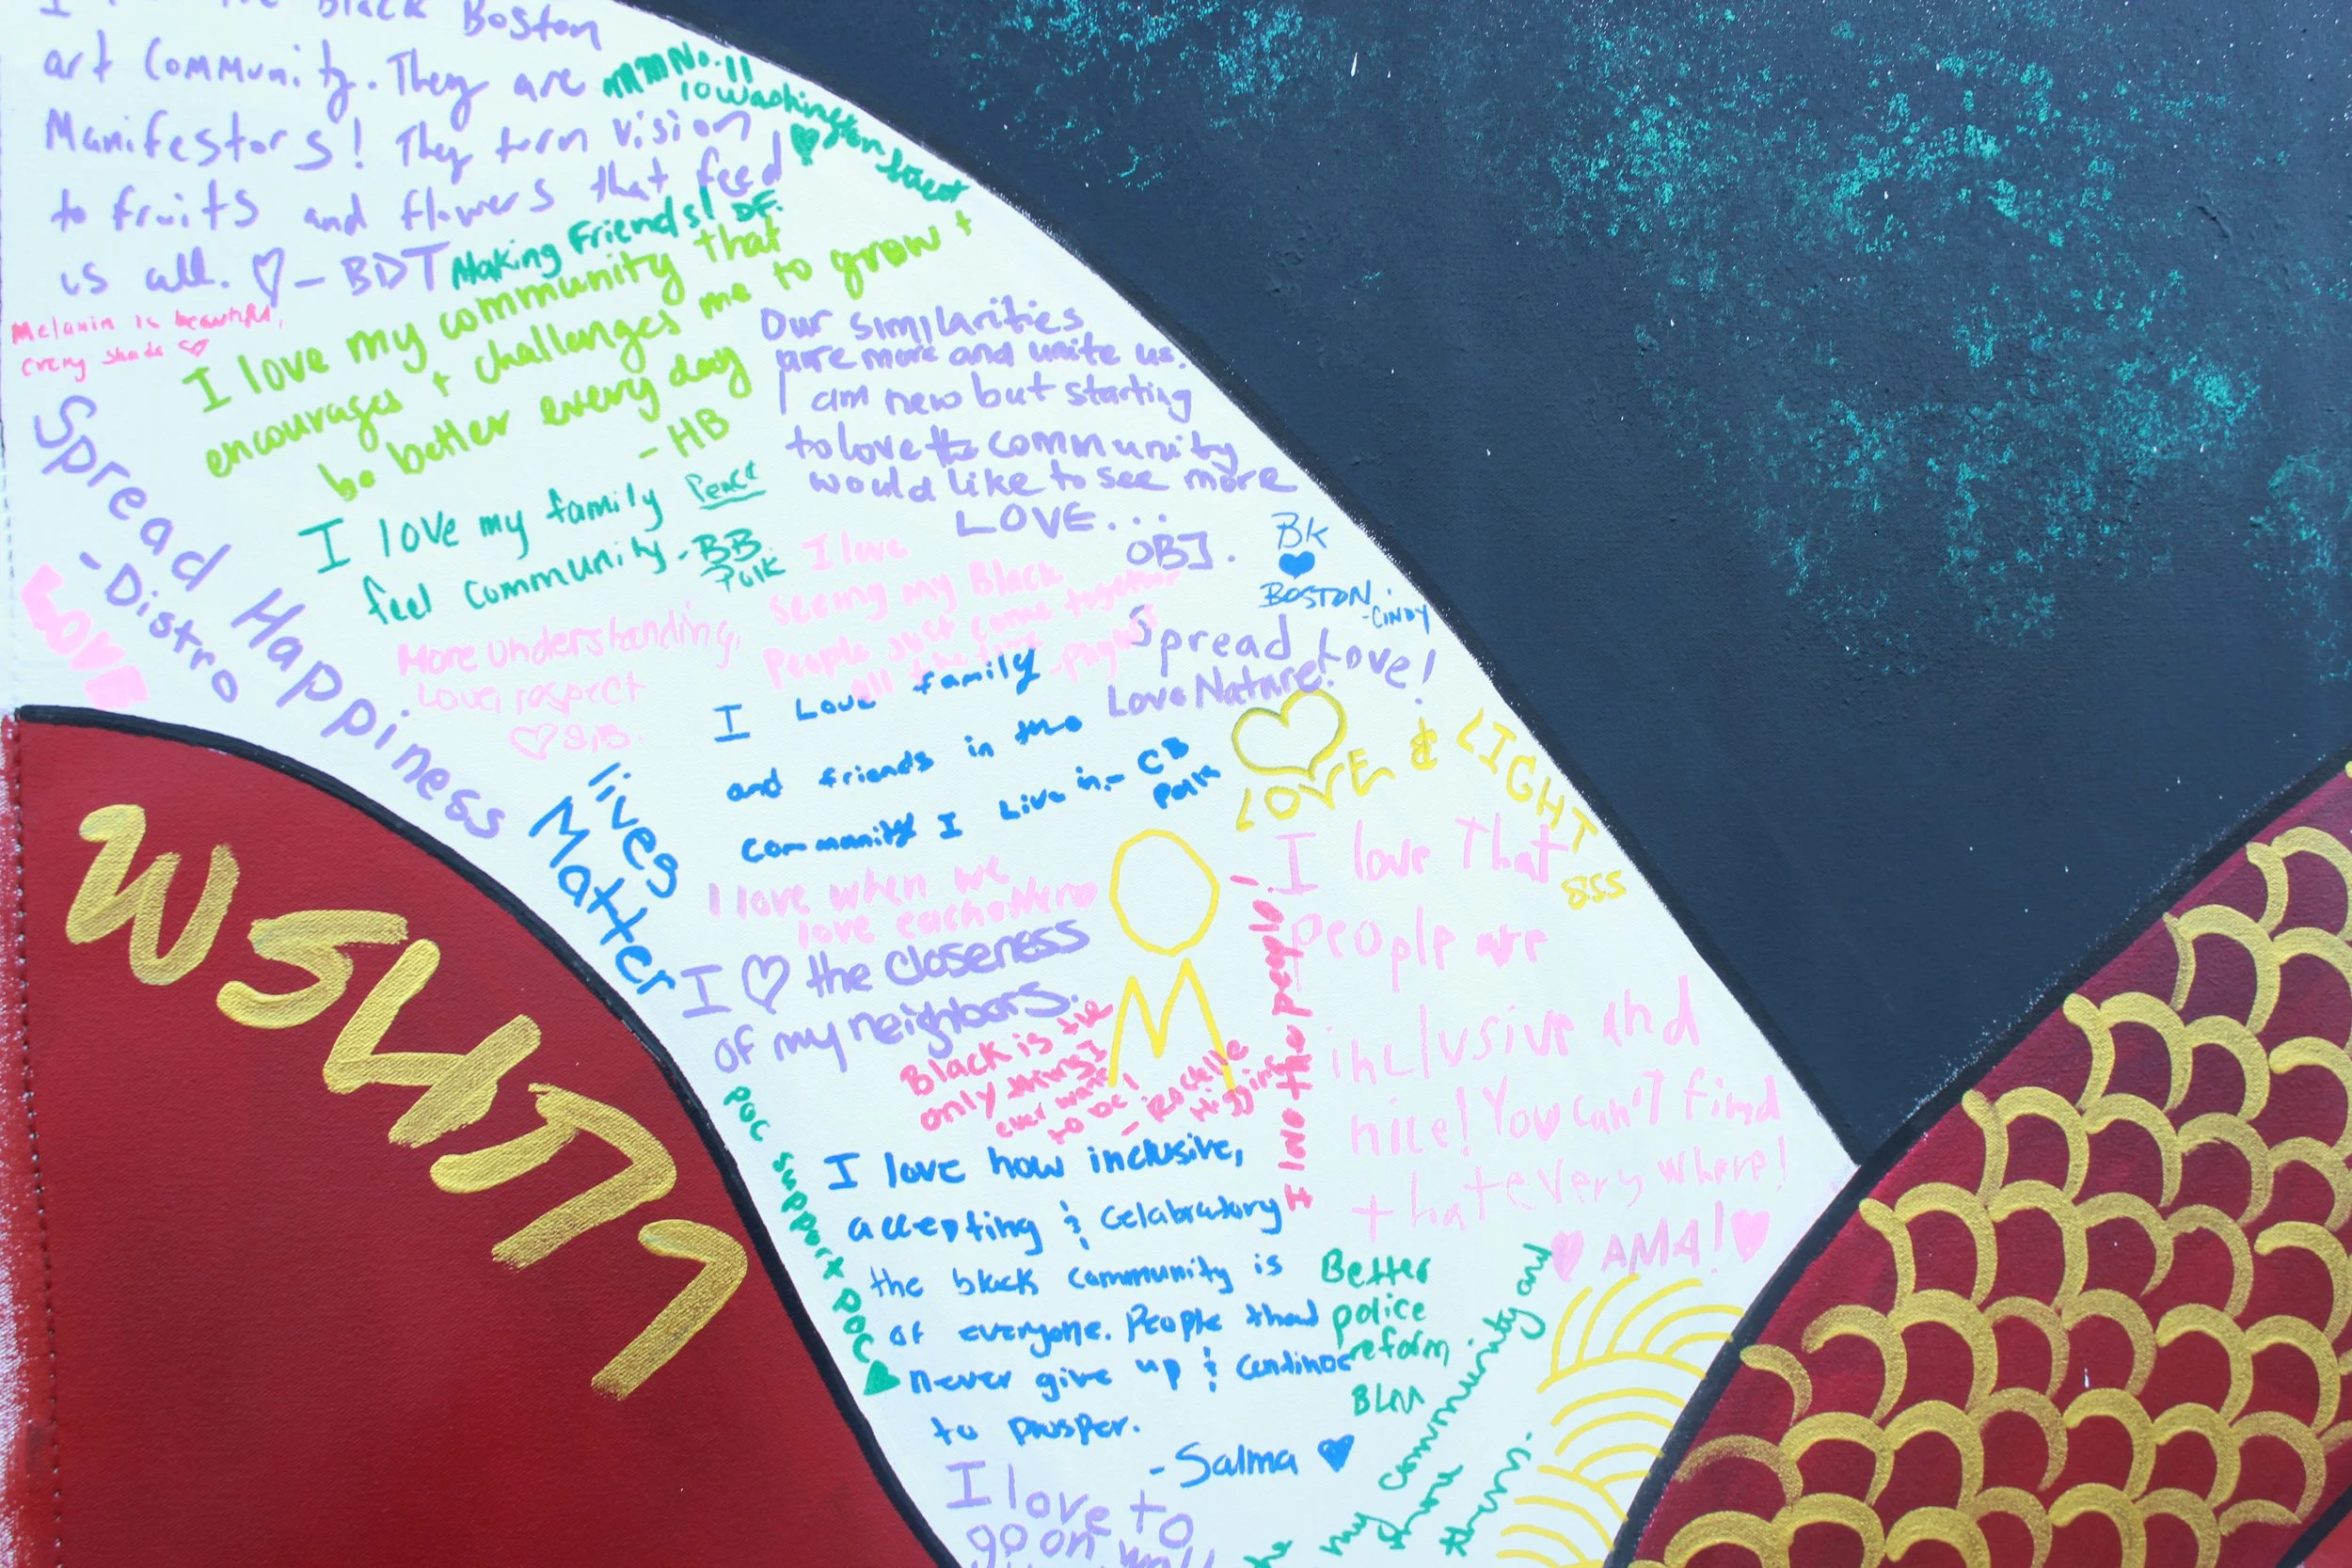 Black Boston
art Community. They are
Manifestors! They turn vision
to fruits and flowers that feed
us all. ♡ - BDT
No. 11
10 Washington Street
Making Friends! DF.
Melanin is beautiful,
every shade ♡
I love my community that
encourages + challenges me to grow +
be better every day
- HB
Our similarities
are more and unite us.
I am new but starting
to love the community
would like to see more
LOVE...
OBJ.
Spread Happiness
- Distro
LOVE
I love my family Peace
feel community - BB
BK
♥
BOSTON.
- CINDY
I love
seeing my Black
People just come together
all the time
Spread Love!
Love Nature!
More understanding,
Love, respect
♡ SIB.
I Love family
and friends in the
community I Live in. - CB
LOVE & LIGHT
855
lives
Matter
I love when we
love each other
I ♡ the closeness
of my neighbors.
Black is the
only thing I
ever want
to be!
- Rochelle
Higgins
I love the people!
I love That
people are
inclusive and
nice! You can't find
that everywhere!
♥ AMA! ♥
POC support POC ♥
I love how inclusive,
accepting & Celabratory
the black community is
of everyone. People that
never give up & continue
to prosper.
- Salma ♥
Better
police
reform
BLM
my community and
I love to
go on